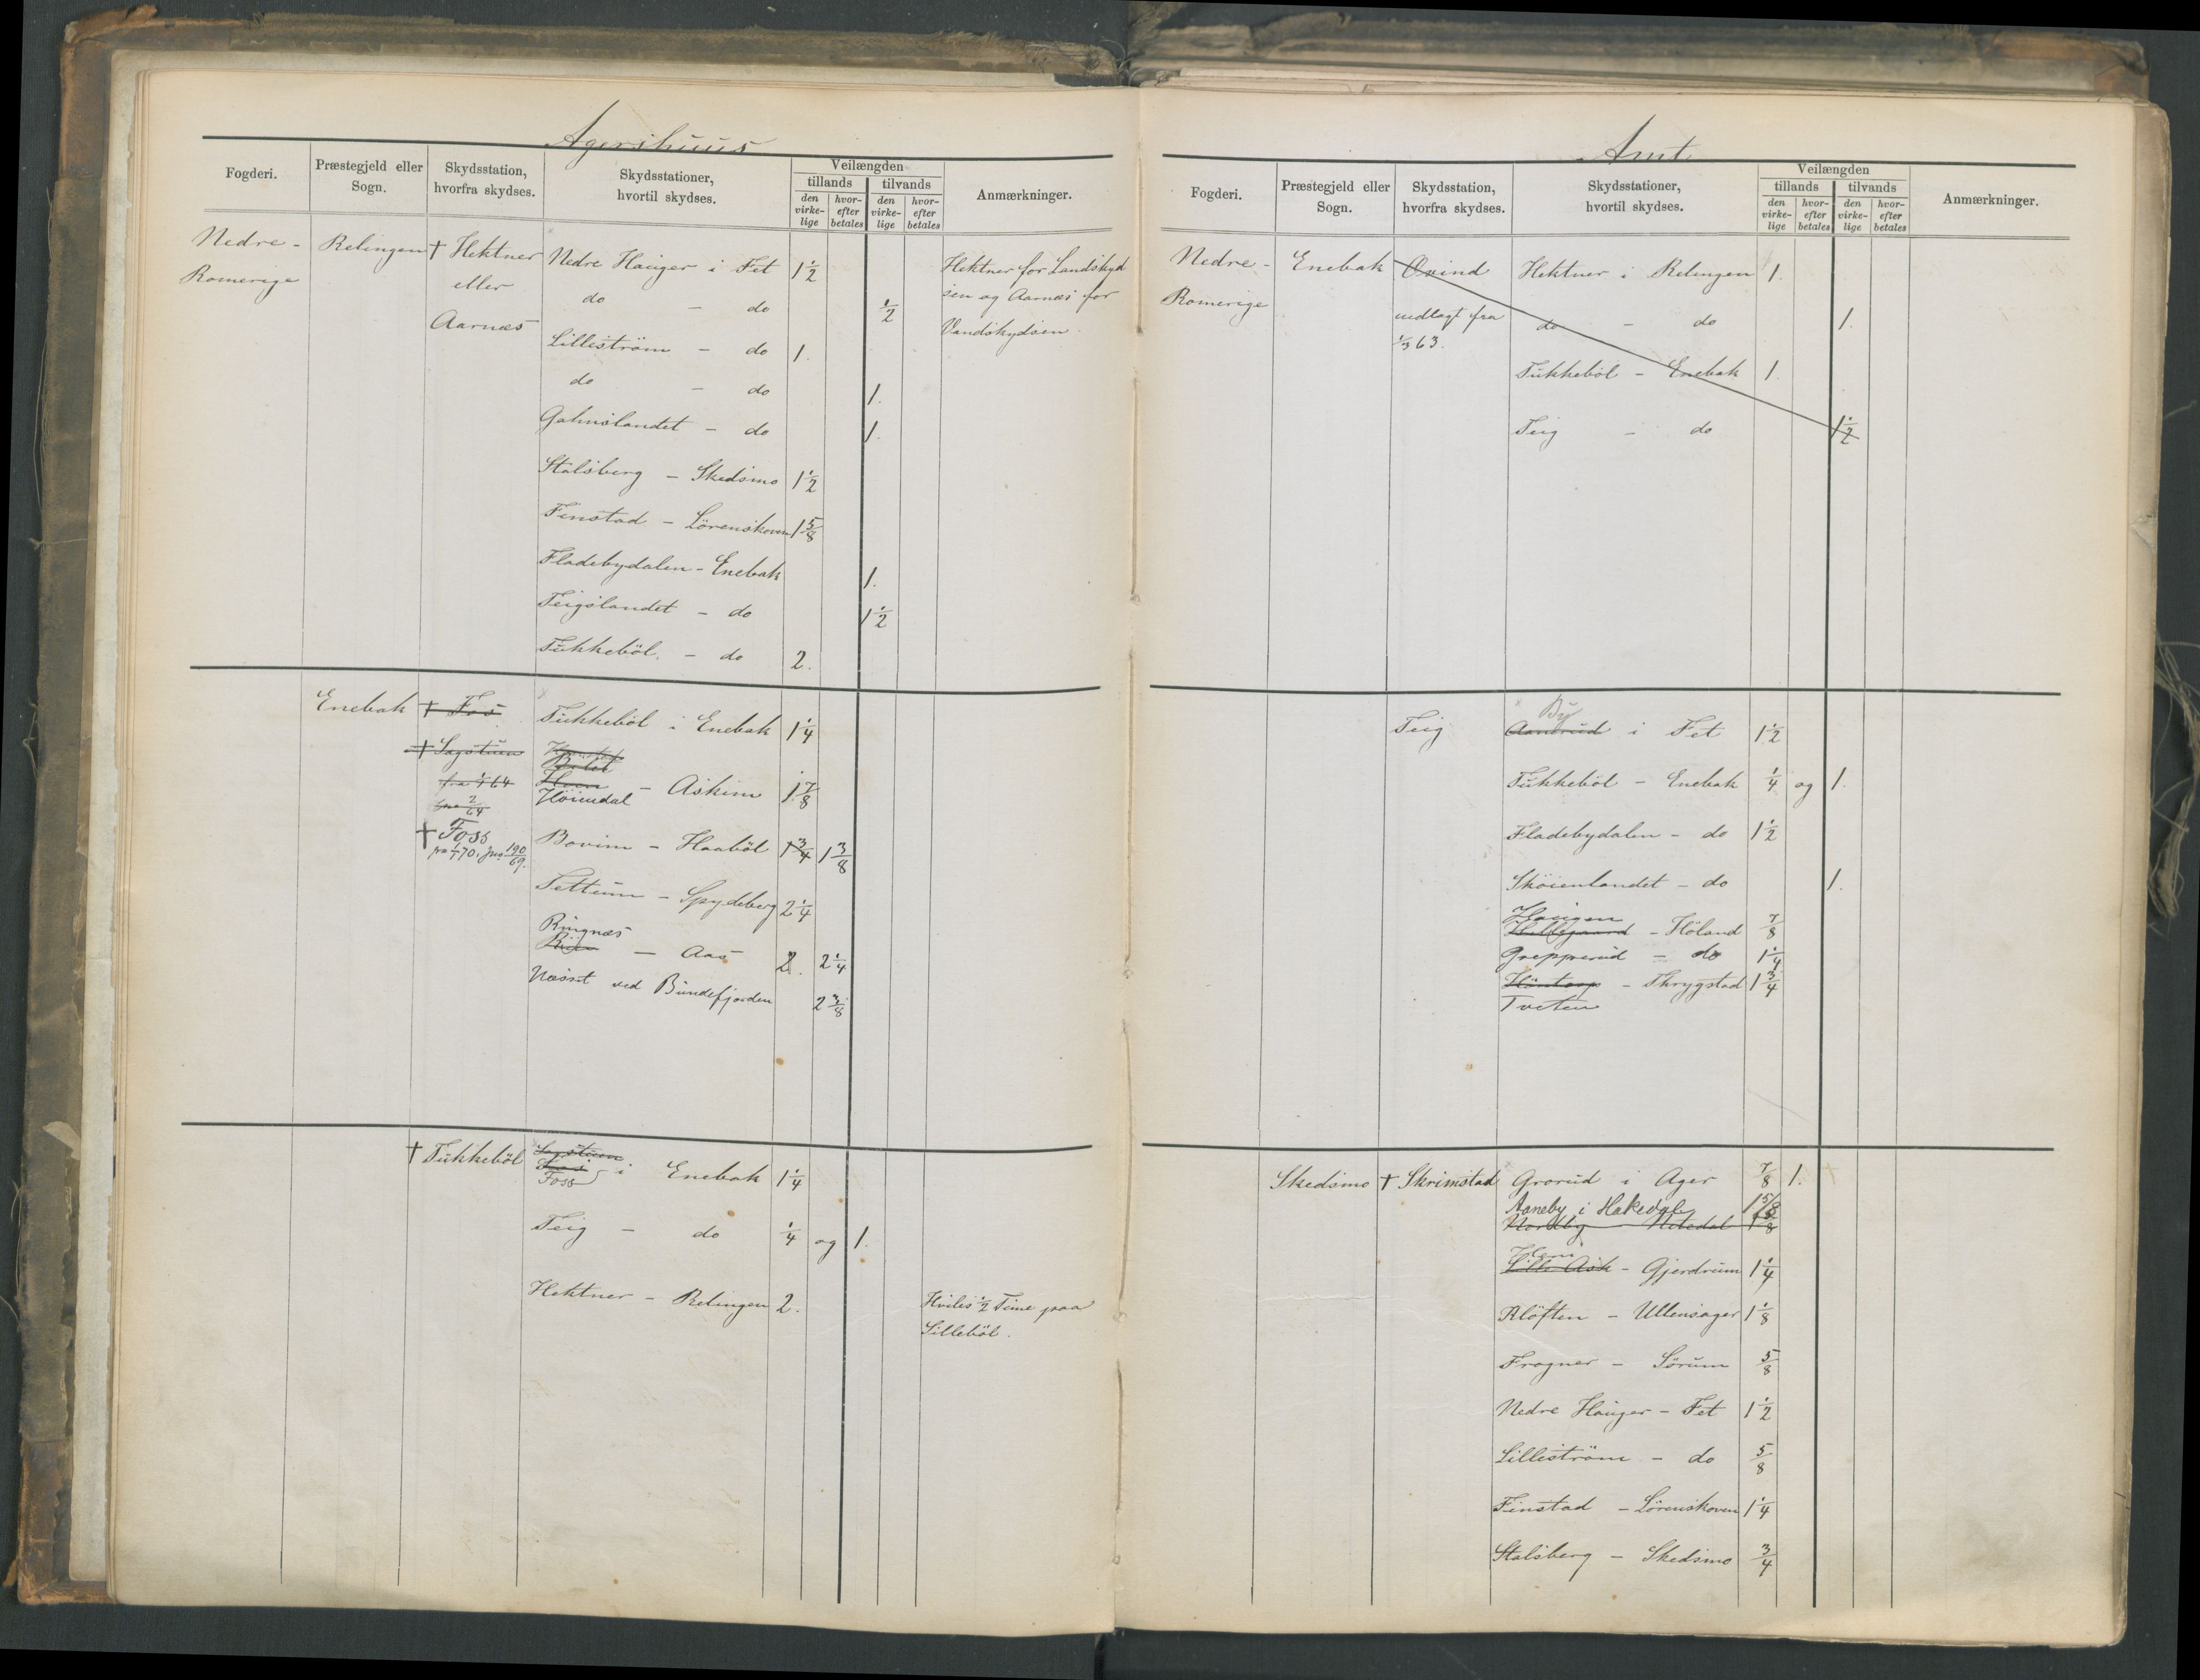 Agershuus
Fogderi. Præstegjeld eller Sogn. Skydsstation, hvorfra skydses. Skydsstationer, hvortil skydses. Veilængden tillands den virkelige hvorefter betales tilvands den virkelige hvorefter betales Anmærkninger.
Nedre- Relingen † Hektner Nedre Hauger i Fet 1 1/2 Hektner for Landskyd
Romerige eller do - do 1/2 sen og Aarnæs for
Aarnæs Lilleström - do 1. Vandskydsen.
do - do 1.
Gahnslandet - do 1.
Stalsberg - Skedsmo 1 1/2
Finstad - Lörenskoven 1 5/8
Fladebydalen - Enebak 1.
Teigslandet - do 1 1/2
Tukkeböl - do 2.
Enebak † Fos Tukkeböl i Enebak 1 1/4
† Sagstuen
fra 1/4 64 Hoen - Askim 1 7/8
Höiendal
† Foss Bovim - Haaböl 1 3/4 1 3/8
fra 1/1 70. Jno 190/69.
Tettum - Spydeberg 2 1/4
Ringnæs
- Aas 2. 2 1/4
Næsset ved Bundefjorden 2 3/8
† Tukkeböl Sagstuen
Fos i Enebak 1 1/4
Foss
Teig - do 1/4 og 1.
Hektner - Relingen 2. Hviles 1/2 Time paa
Lilleböl.
Amt
Fogderi. Præstegjeld eller Sogn. Skydsstation, hvorfra skydses. Skydsstationer, hvortil skydses. Veilængden tillands den virkelige hvorefter betales tilvands den virkelige hvorefter betales Anmærkninger.
Nedre- Enebak Øxind Hektner i Relingen 1.
Romerige nedlagt fra do - do 1.
1/3 63. Tukkeböl - Enebak 1.
Teig - do 1 1/2
By
Teig Aamrud i Fet 1 1/2
Tukkeböl - Enebak 1/4 og 1.
Fladebydalen - do 1 1/2
Sköienlandet - do 1.
Haugen
Hellegaard - Höland 7/8
Grepperud - do 1 1/4
- Thrygstad 1 3/4
Tveten
Skedsmo † Skrimstad Grorud i Ager 7/8 1.
Aaneby i Hakedal 1 5/8
Nordby Nitedal 1 5/8
Lille Ask - Gjerdrum 1 1/4
Klöften - Ullensager 1 1/8
Frogner - Sörum 5/8
Nedre Hauger - Fet 1 1/2
Lilleström - do 5/8
Finstad - Lörenskoven 1 1/4
Stalsberg - Skedsmo 3/4